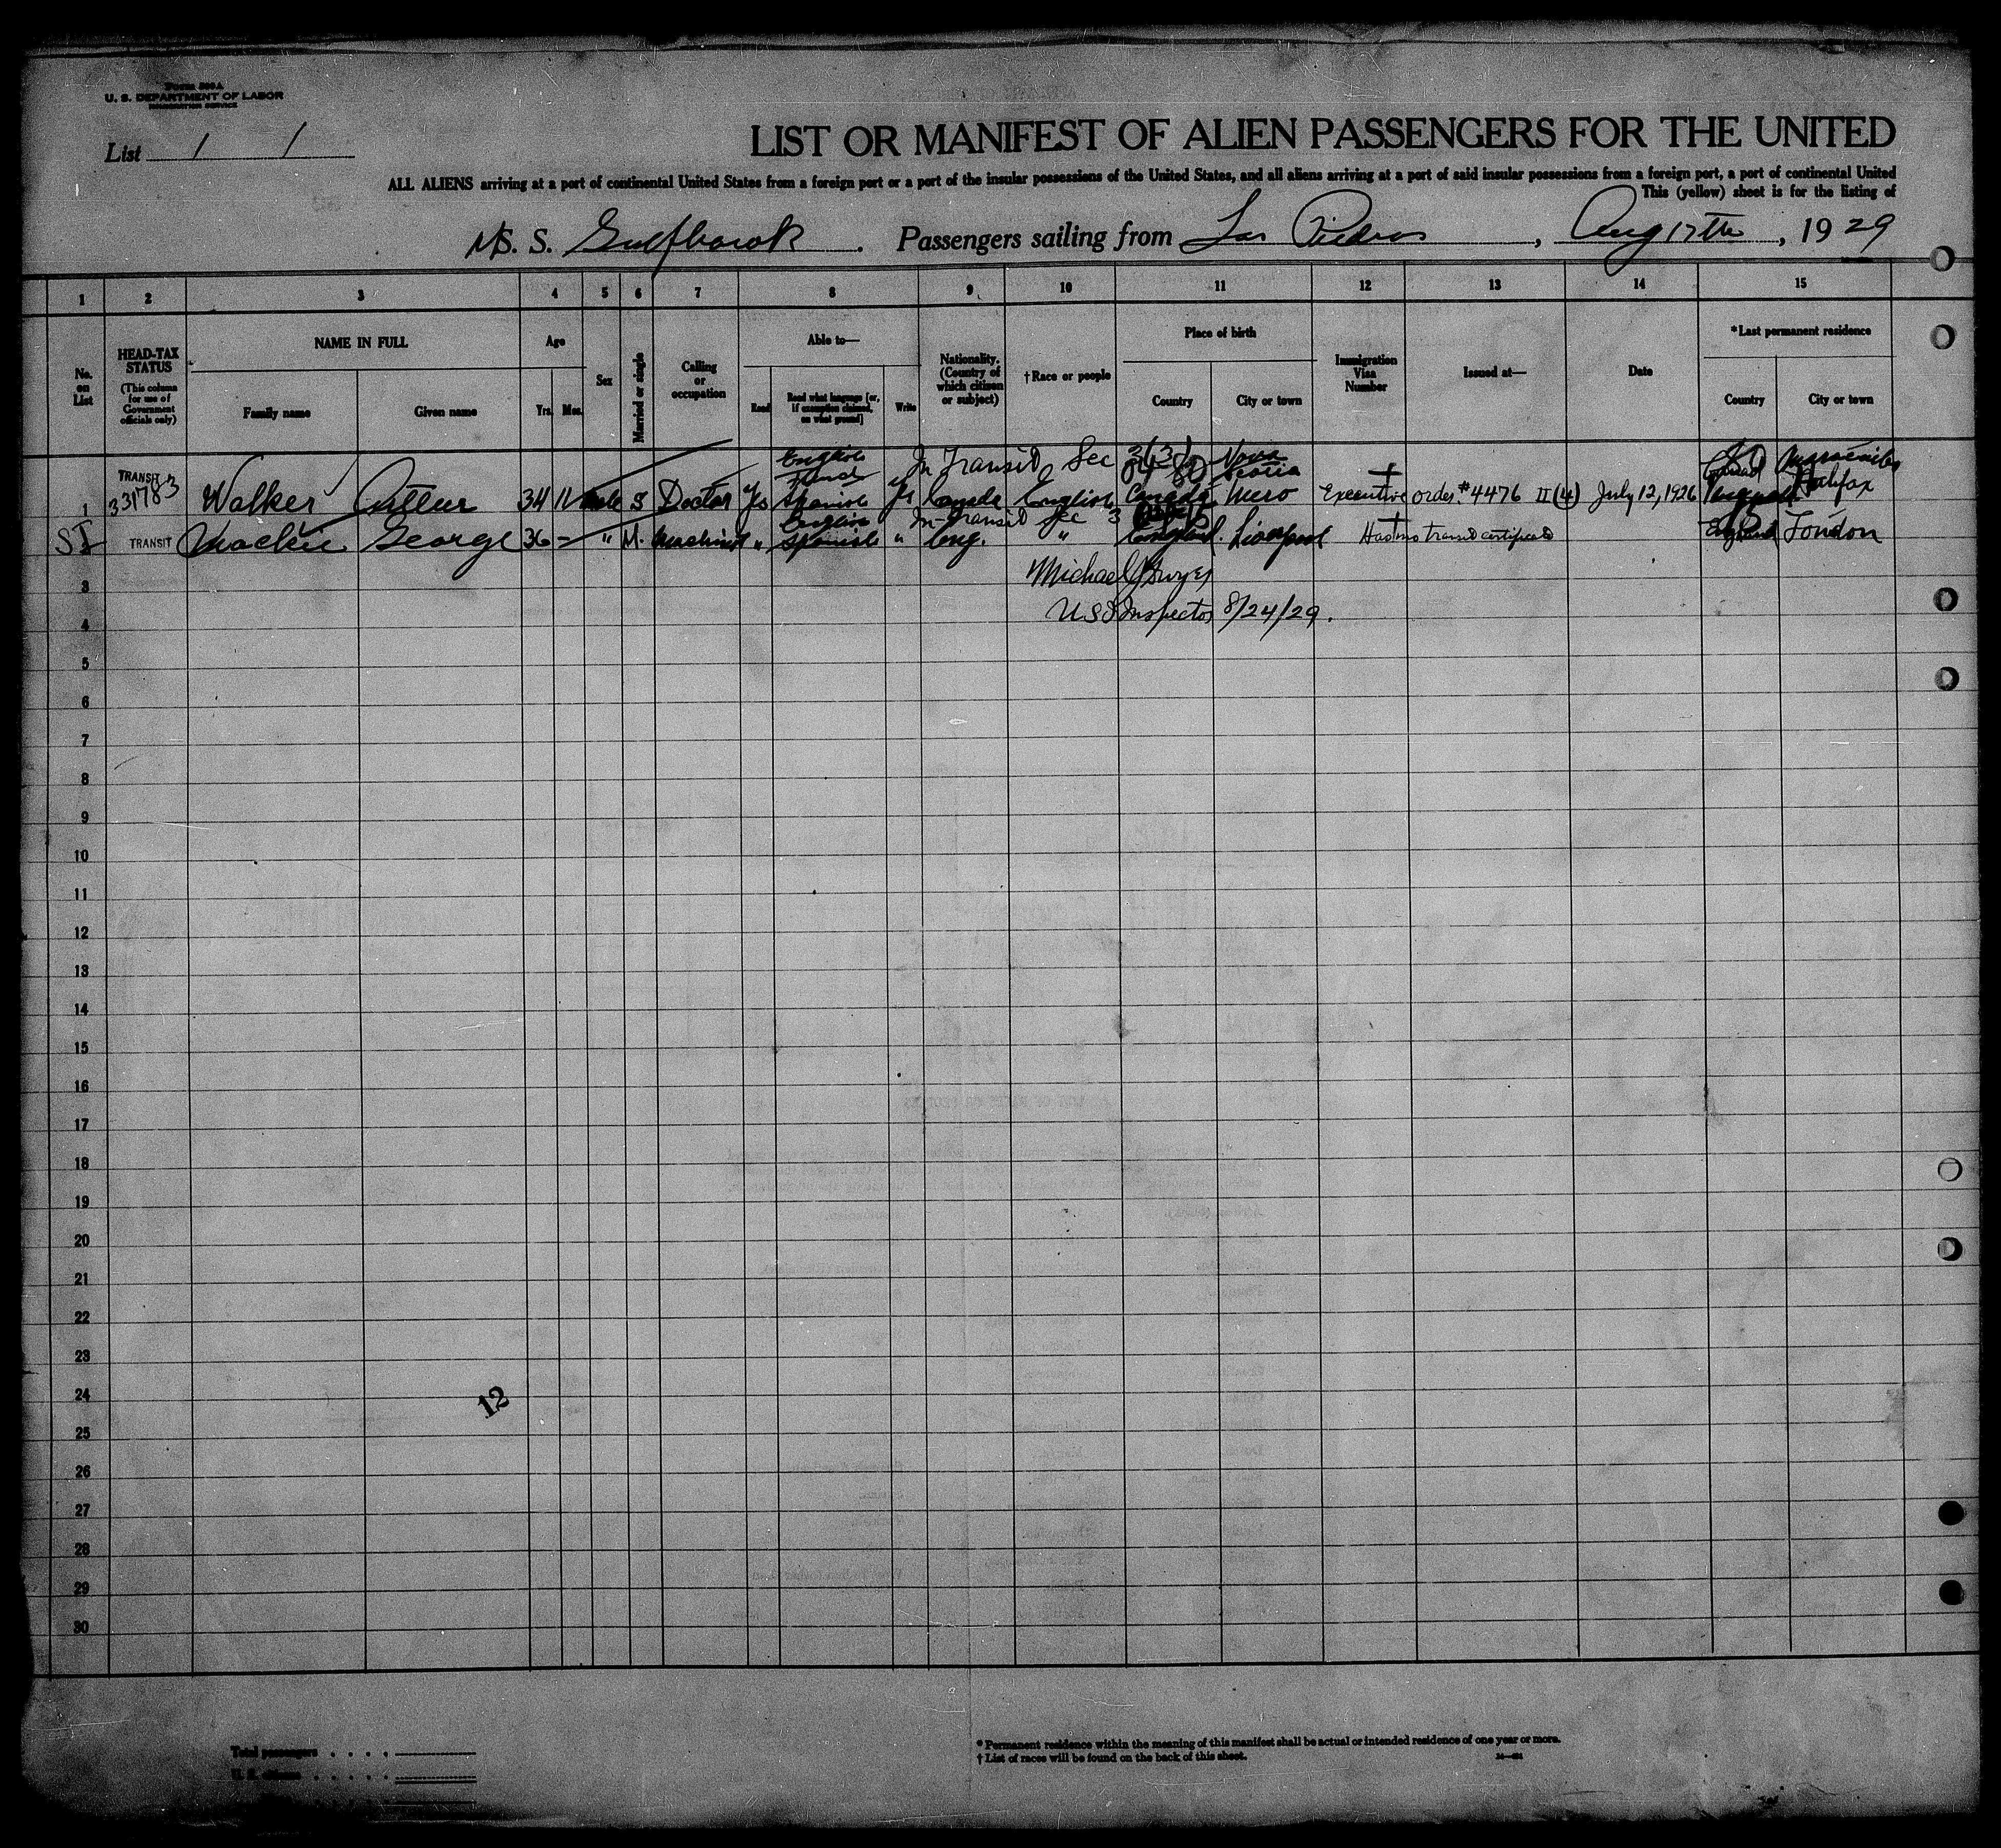 Form 500A
U. S. DEPARTMENT OF LABOR
IMMIGRATION SERVICE
List 1 1
LIST OR MANIFEST OF ALIEN PASSENGERS FOR THE UNITED
ALL ALIENS arriving at a port of continental United States from a foreign port or a port of the insular possessions of the United States, and all aliens arriving at a port of said insular possessions from a foreign port, a port of continental United
This (yellow) sheet is for the listing of
S. S. Passengers sailing from Las Piedras, Aug 17th, 1929
1 2 3 4 5 6 7 8 9 10 11 12 13 14 15
No. on List
HEAD-TAX STATUS
(This column for use of Government officials only)
NAME IN FULL
Family name Given name
Age
Yrs. Mos.
Sex
Married or single
Calling or occupation
Able to—
Read Read what language [or, if exemption claimed, on what ground] Write
Nationality. (Country of which citizen or subject)
†Race or people
Place of birth
Country City or town
Immigration Visa Number
Issued at—
Date
*Last permanent residence
Country City or town
English In Transit Sec Nova Scotia
1 TRANSIT 331783 Walker Arthur 34 11 male S Doctor Yes Spanish Yes Canada English Canada Executive order #4476 II(4) July 12, 1926 Halifax
English In transit Sec 3
SI TRANSIT Mackie George 36 – " M. Machinist " Spanish " Eng. " England Liverpool Has no transit certificate England London
3 Michael
4 US Inspector 8/24/29.
5
6
7
8
9
10
11
12
13
14
15
16
17
18
19
20
21
22
23
24
12
25
26
27
28
29
30
Total passengers
U. S. citizens
* Permanent residence within the meaning of this manifest shall be actual or intended residence of one year or more.
† List of races will be found on the back of this sheet.